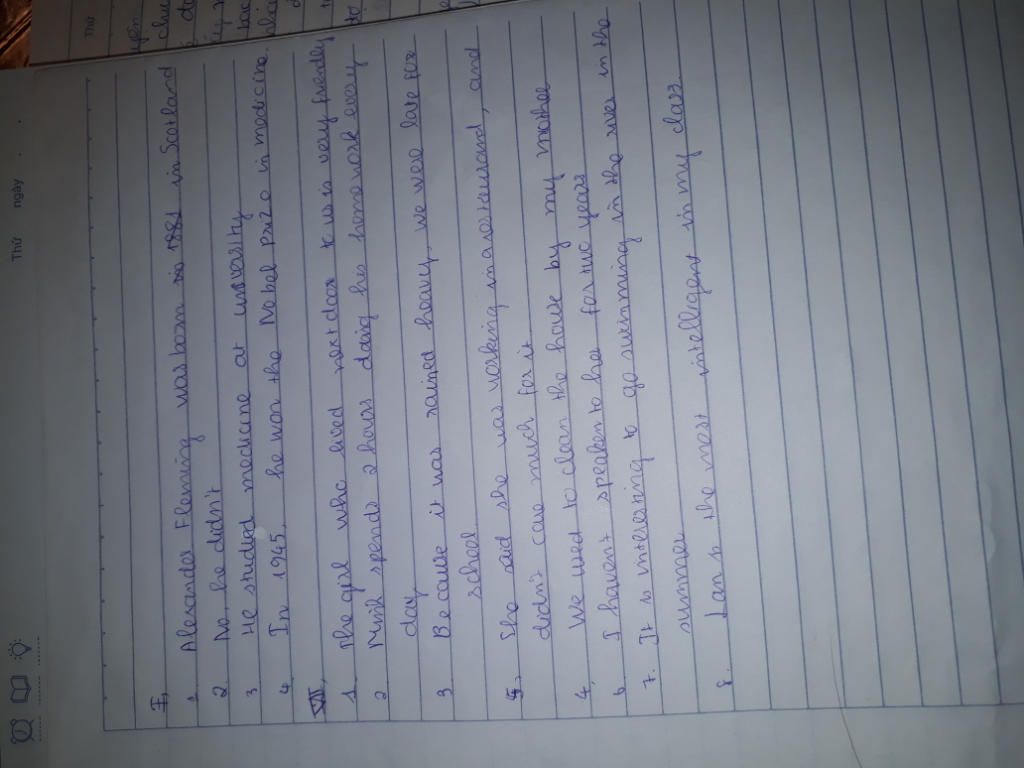 Thứ ngày
Thứ
I,
1 Alexander Fleming was born in 1881 in Scotland
2. No, he didn't
3 He studied medicane at univesity
4. In 1945, he won the Nobel prize in medicine.
VII,
1. The girl who lived next door to us is very friendly
2 Minh spends 2 hours doing his homework every
day
3 Because it was rained heavy, we were late for
school
5. She said she was working in a restaurant, and
didn't care much for it
4. We used to clean the house by my mother
6 I haven't speaken to her for two years
7. It is interesting to go swimming in the river in the
summer
8. Lan is the most intelligent in my class.